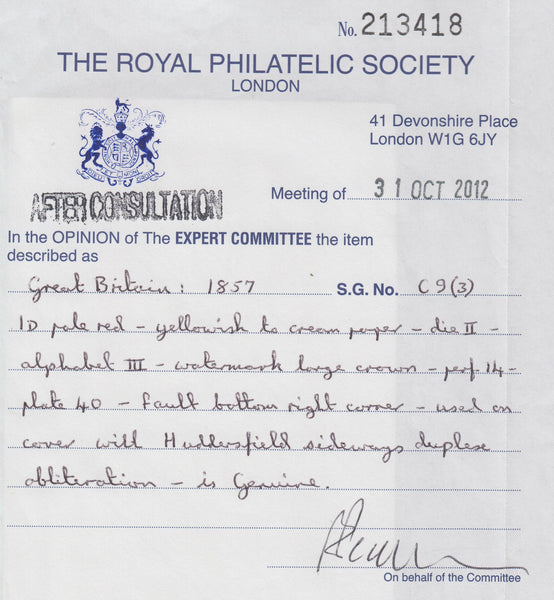 No. 213418
THE ROYAL PHILATELIC SOCIETY
LONDON
41 Devonshire Place
London W1G 6JY
AFTER CONSULTATION
Meeting of 31 OCT 2012
In the OPINION of The EXPERT COMMITTEE the item
described as
Great Britain: 1857 S.G. No. C9(3)
1D pale red - yellowish to cream paper - die II -
alphabet III - watermark large crown - perf 14 -
plate 40 - fault bottom right corner - used on
cover with Huddersfield sideways duplex
obliteration - is Genuine.
On behalf of the Committee